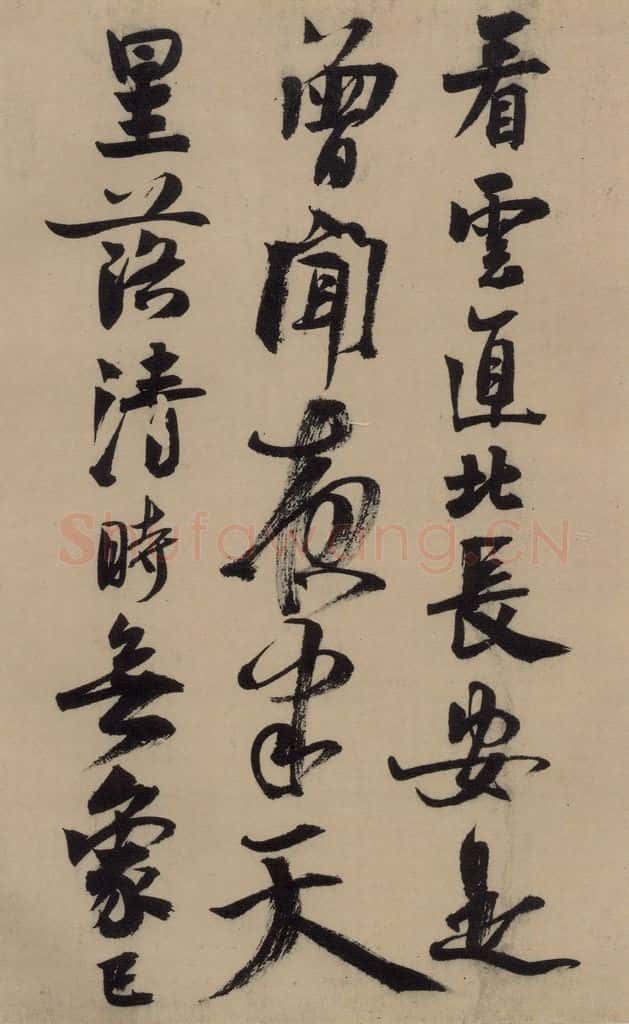 看雲直北長安是
曾聞夜半天
星落清時無象已
Shufawang.CN